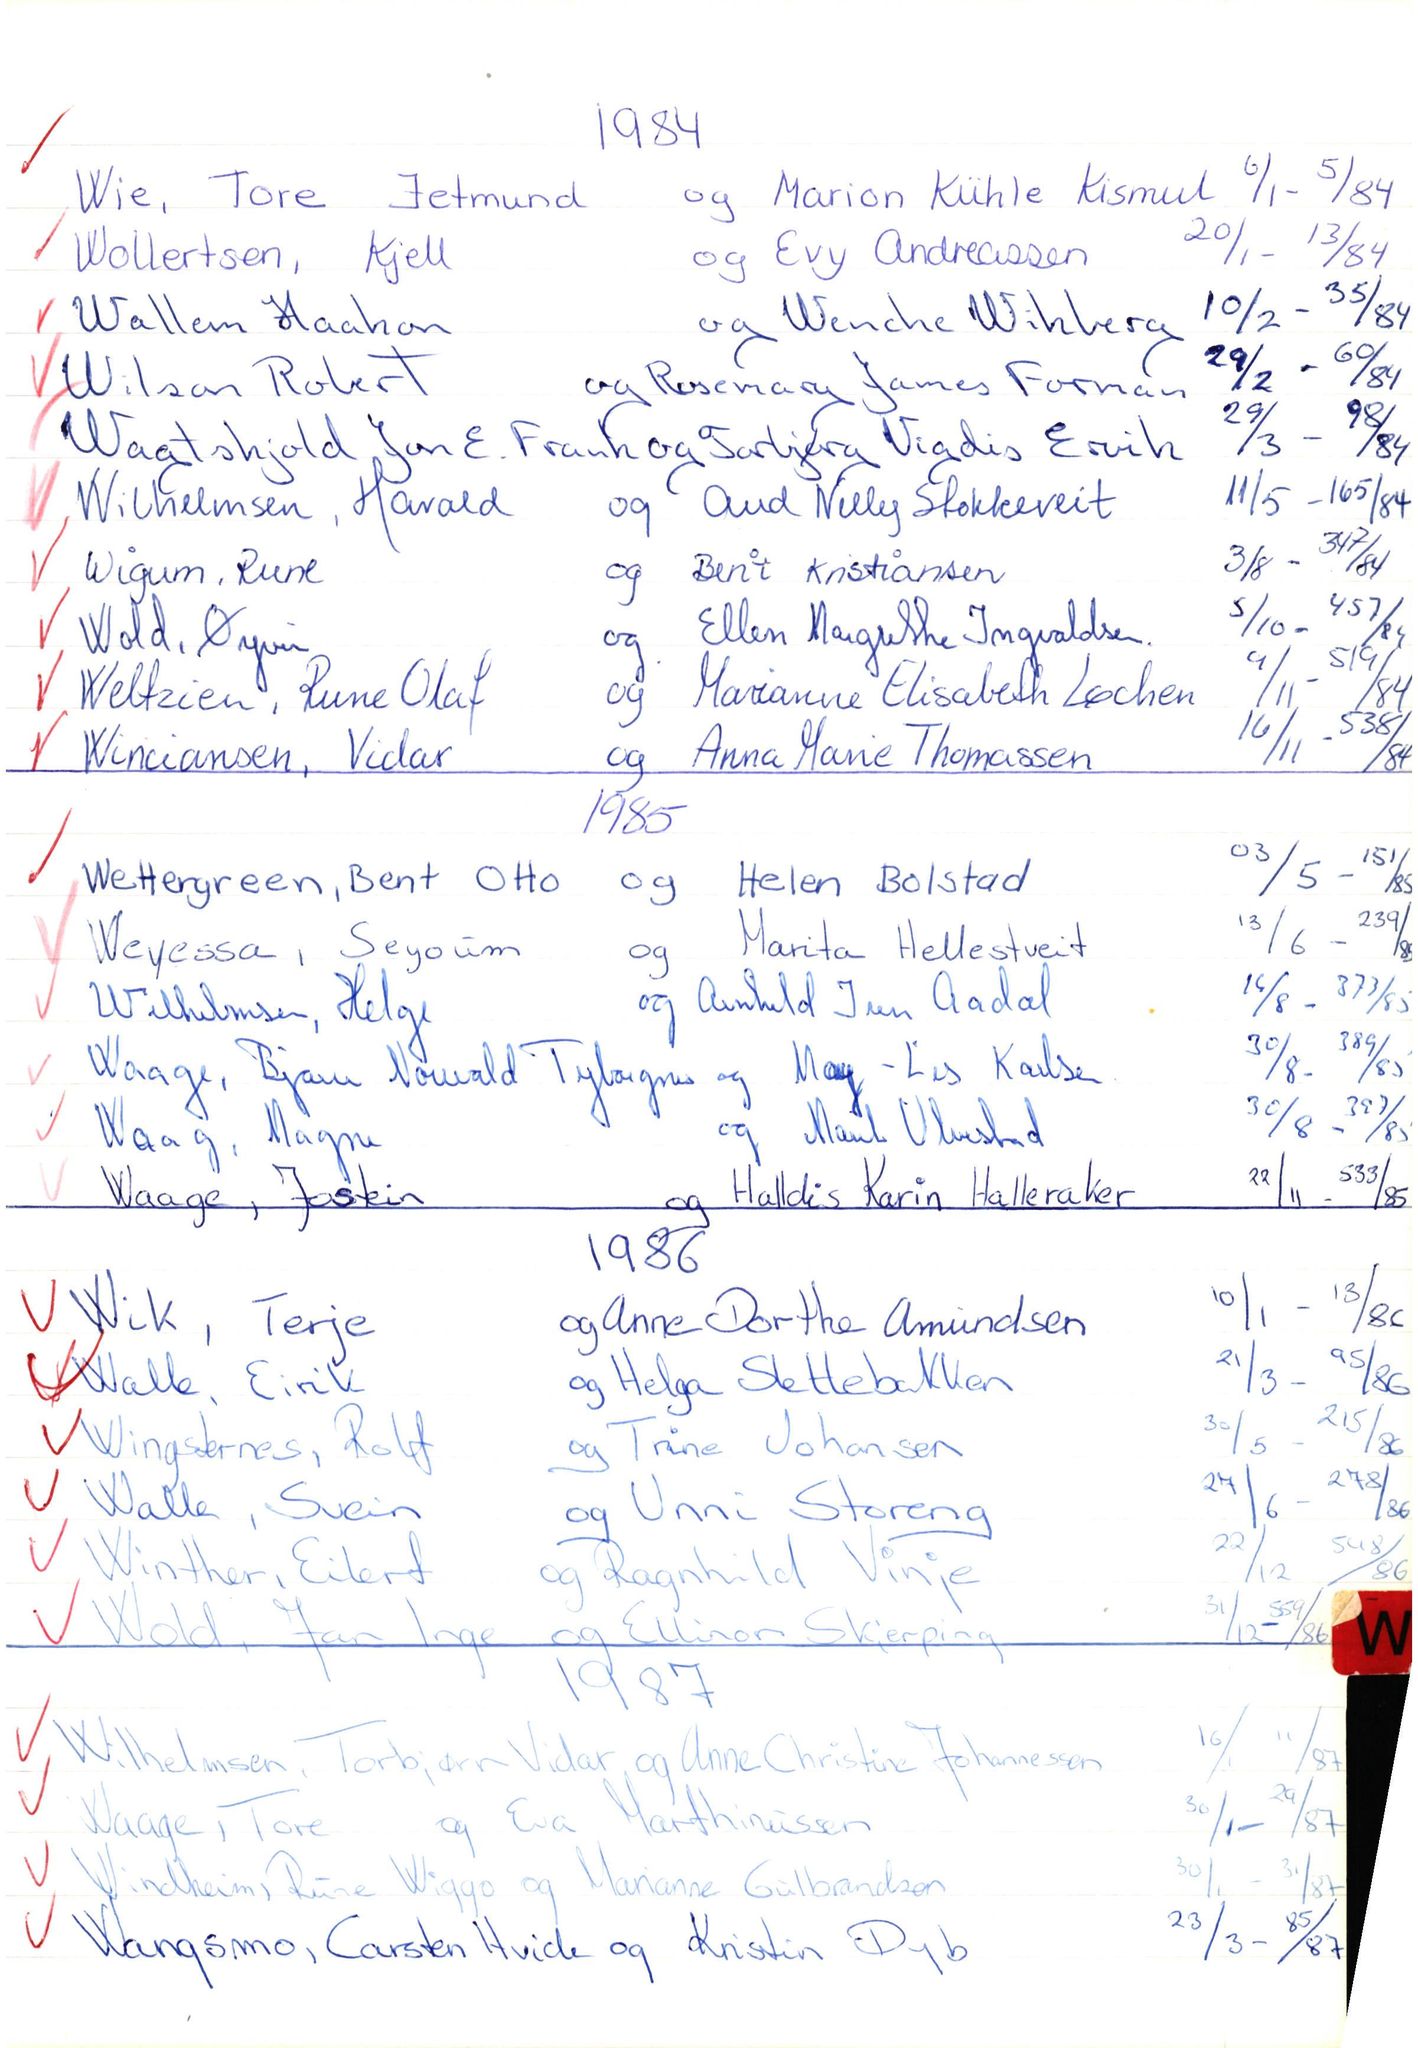 1984
Wie, Tore Jetmund og Marion Kühle Kismul 6/1 - 5/84
Wollertsen, Kjell og Evy Andreassen 20/1 - 13/84
Wallem Haakon og Wenche Wikberg 10/2 - 35/84
Wilson Robert og Rosemary James Forman 29/2 - 60/84
Waatskjold Jon E. Frank og Torbjørg Vigdis Ervik 29/3 - 98/84
Wilhelmsen, Harald og Aud Nelly Stokkeveit 11/5 - 165/84
Wigum, Rune og Berit Kristiansen 3/8 - 347/84
Wold, Øyvin og Ellen Margrethe Ingvaldsen. 5/10 - 457/84
Weltzien, Rune Olaf og Marianne Elisabeth Lochen 9/11 - 519/84
Winciansen, Vidar og Anna Marie Thomassen 16/11 - 538/84
1985
Wettergreen, Bent Otto og Helen Bolstad 03/5 - 151/85
Weyessa, Seyoum og Marita Hellestveit 13/6 - 239/85
Wilhelmsen, Helge og Aadal 16/8 - 373/85
Waage, Bjarne og May-Lis Karlsen 30/8 - 389/85
Waag, Magne og Marit Ulvestad 30/8 - 397/85
Waage, Jostein og Halldis Karin Halleraker 22/11 - 533/85
1986
Wik, Terje og Anne Dorthe Amundsen 10/1 - 13/86
Walle, Eirik og Helga Slettebakken 21/3 - 95/86
Wingsternes, Rolf og Trine Johansen 30/5 - 215/86
Walle, Svein og Unni Storeng 27/6 - 278/86
Winther, Eilert og Ragnhild Vinje 22/12 548/86
Wold, Jan Inge og Ellinor Skjerping 31/12 - 559/86
W
1987
Wilhelmsen, Torbjørn Vidar og Anne Christine Johannessen 16/1 11/87
Waage, Tore og Eva Marthinussen 30/1 - 29/87
Windheim, Rune Wiggo og Marianne Gulbrandsen 30/1 - 31/87
Wangsmo, Carsten Hvide og Kristin Dyb 23/3 - 85/87